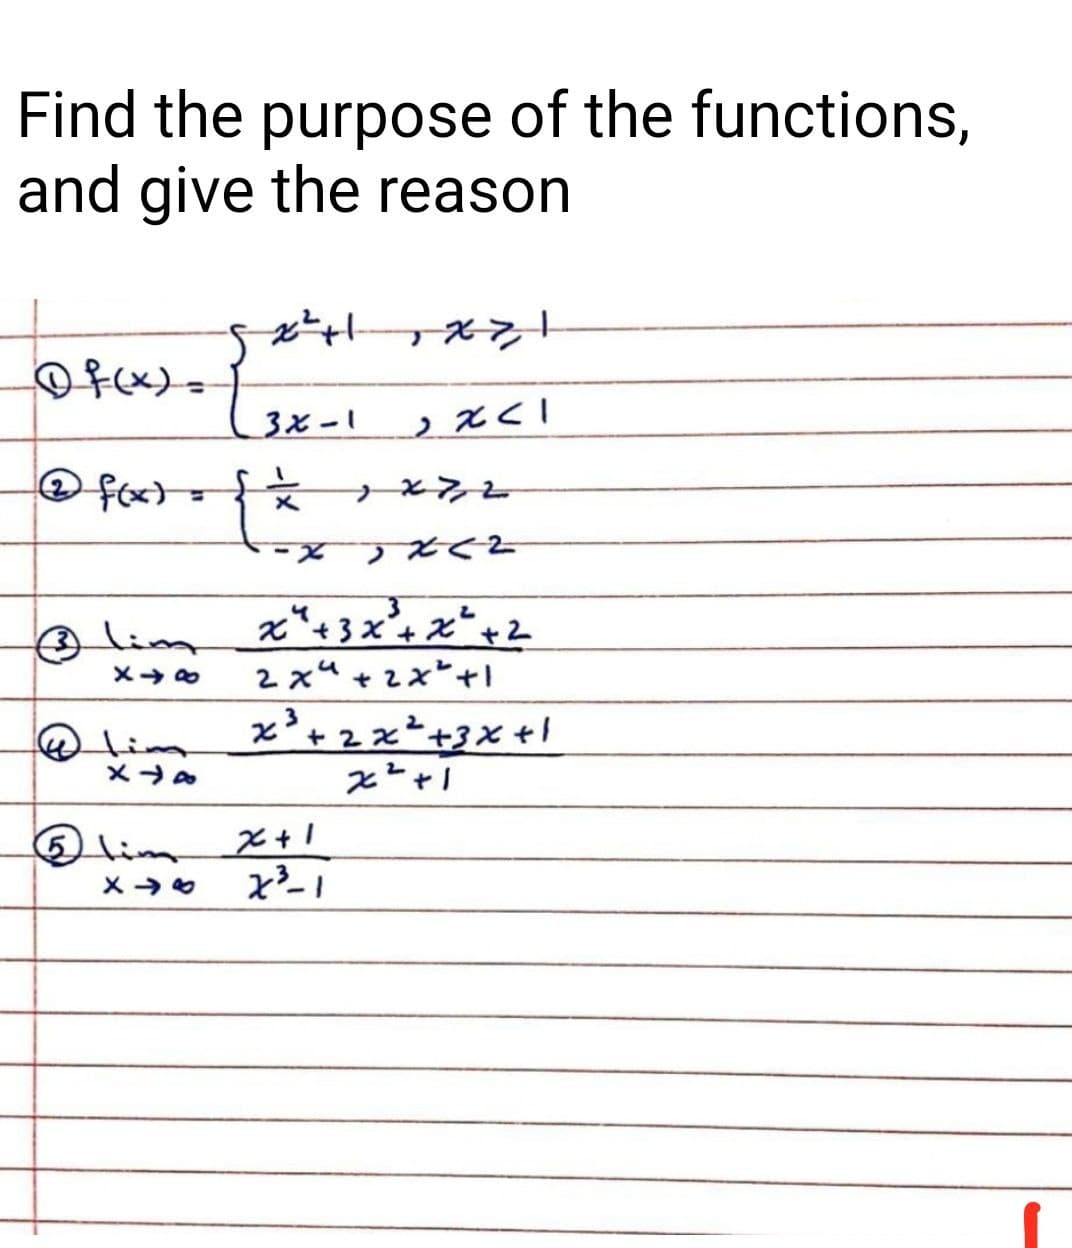 Find the purpose of the functions,
and give the reason
① f(x) = { x²+1 , x ⩾ 1
3x-1 , x < 1
② f(x) = { 1/x , x ⩾ 2
-x , x < 2
③ lim x→∞ (x⁴+3x³+x²+2)/(2x⁴+2x²+1)
④ lim x→∞ (x³+2x²+3x+1)/(x²+1)
⑤ lim x→∞ (x+1)/(x³-1)